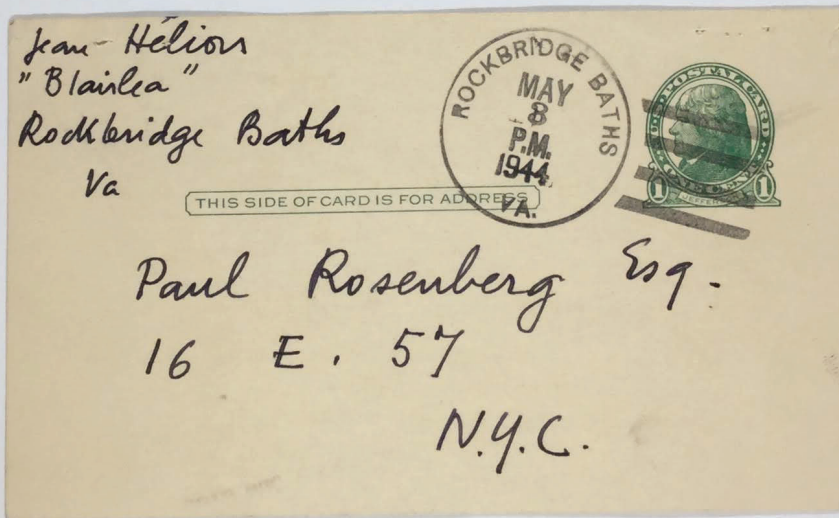 Jean Hélion
"Blairlea"
Rockbridge Baths
Va
ROCKBRIDGE BATHS
MAY
8
P.M.
1944
VA.
U·S·POSTAL CARD
1 ONE CENT 1
JEFFERSON
THIS SIDE OF CARD IS FOR ADDRESS
Paul Rosenberg Esq.
16 E. 57
N.Y.C.